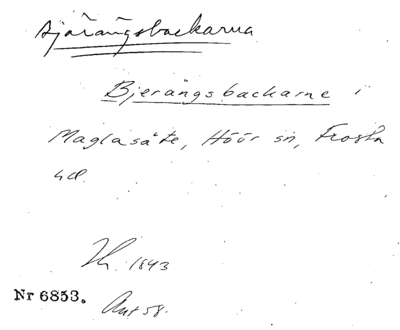 Bjärängsbackarna
Bjerängsbackarne i
Maglasäte, Höör sn, Frosta
hd.
1843
Nr 6853.
Ant 58.